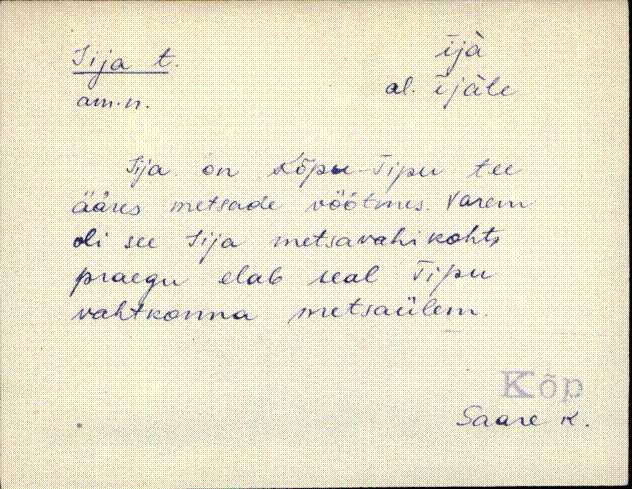 Iija t.
ījà
am.n.
al. ījàle
Iija on Kõpu-Tipu tee
ääres metsade vöötmes. Varem
oli see Iija metsavahikoht,
praegu elab seal Tipu
vahtkonna metsaülem.
Kõp
Saare k.